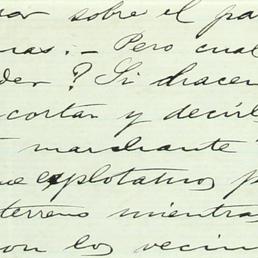 sobre el pa
ras. — Pero cual
der? Si hacen
cortar y decirl
marchante
ue explotativos p
terreno mientra
on los vecin